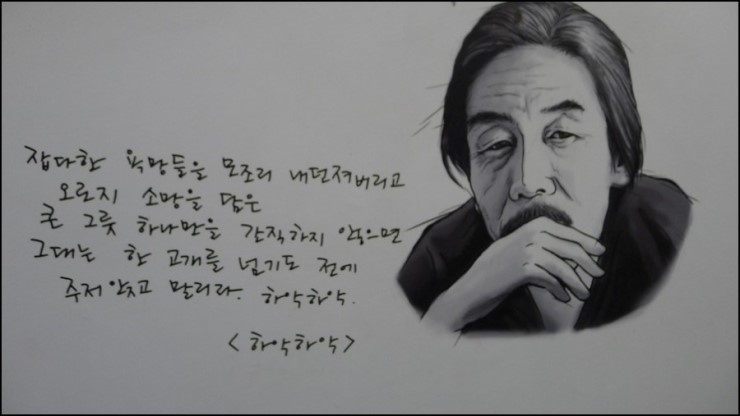 잡다한 욕망들을 모조리 내던져버리고
오로지 소망을 담은
큰 그릇 하나만을 간직하지 않으면
그대는 한 고개를 넘기도 전에
주저앉고 말리라. 하악하악.
<하악하악>